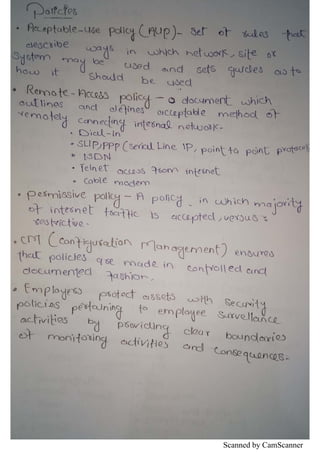 Policies
• Acceptable-use policy (AUP)- set of rules that
describe ways in which network, site or
System may be used and sets guides as to
how it should be used
• Remote-Access policy - a document which
outlines and defines acceptable method of
remotely connecting internal network.
• Dial-in
• SLIP/PPP (Serial Line IP, point to point protocol
• ISDN
• Telnet access from internet
• cable modem
• permissive policy - A policy in which majority
of internet traffic is accepted, versus
restrictive.
• CM (Configuration Management) ensures
that policies are made in controlled and
documented fashion.
• Employers protect assets with security
policies pertaining to employee survellance
activities by providing clear boundaries
of monitoring activities and consequences.
Scanned by CamScanner